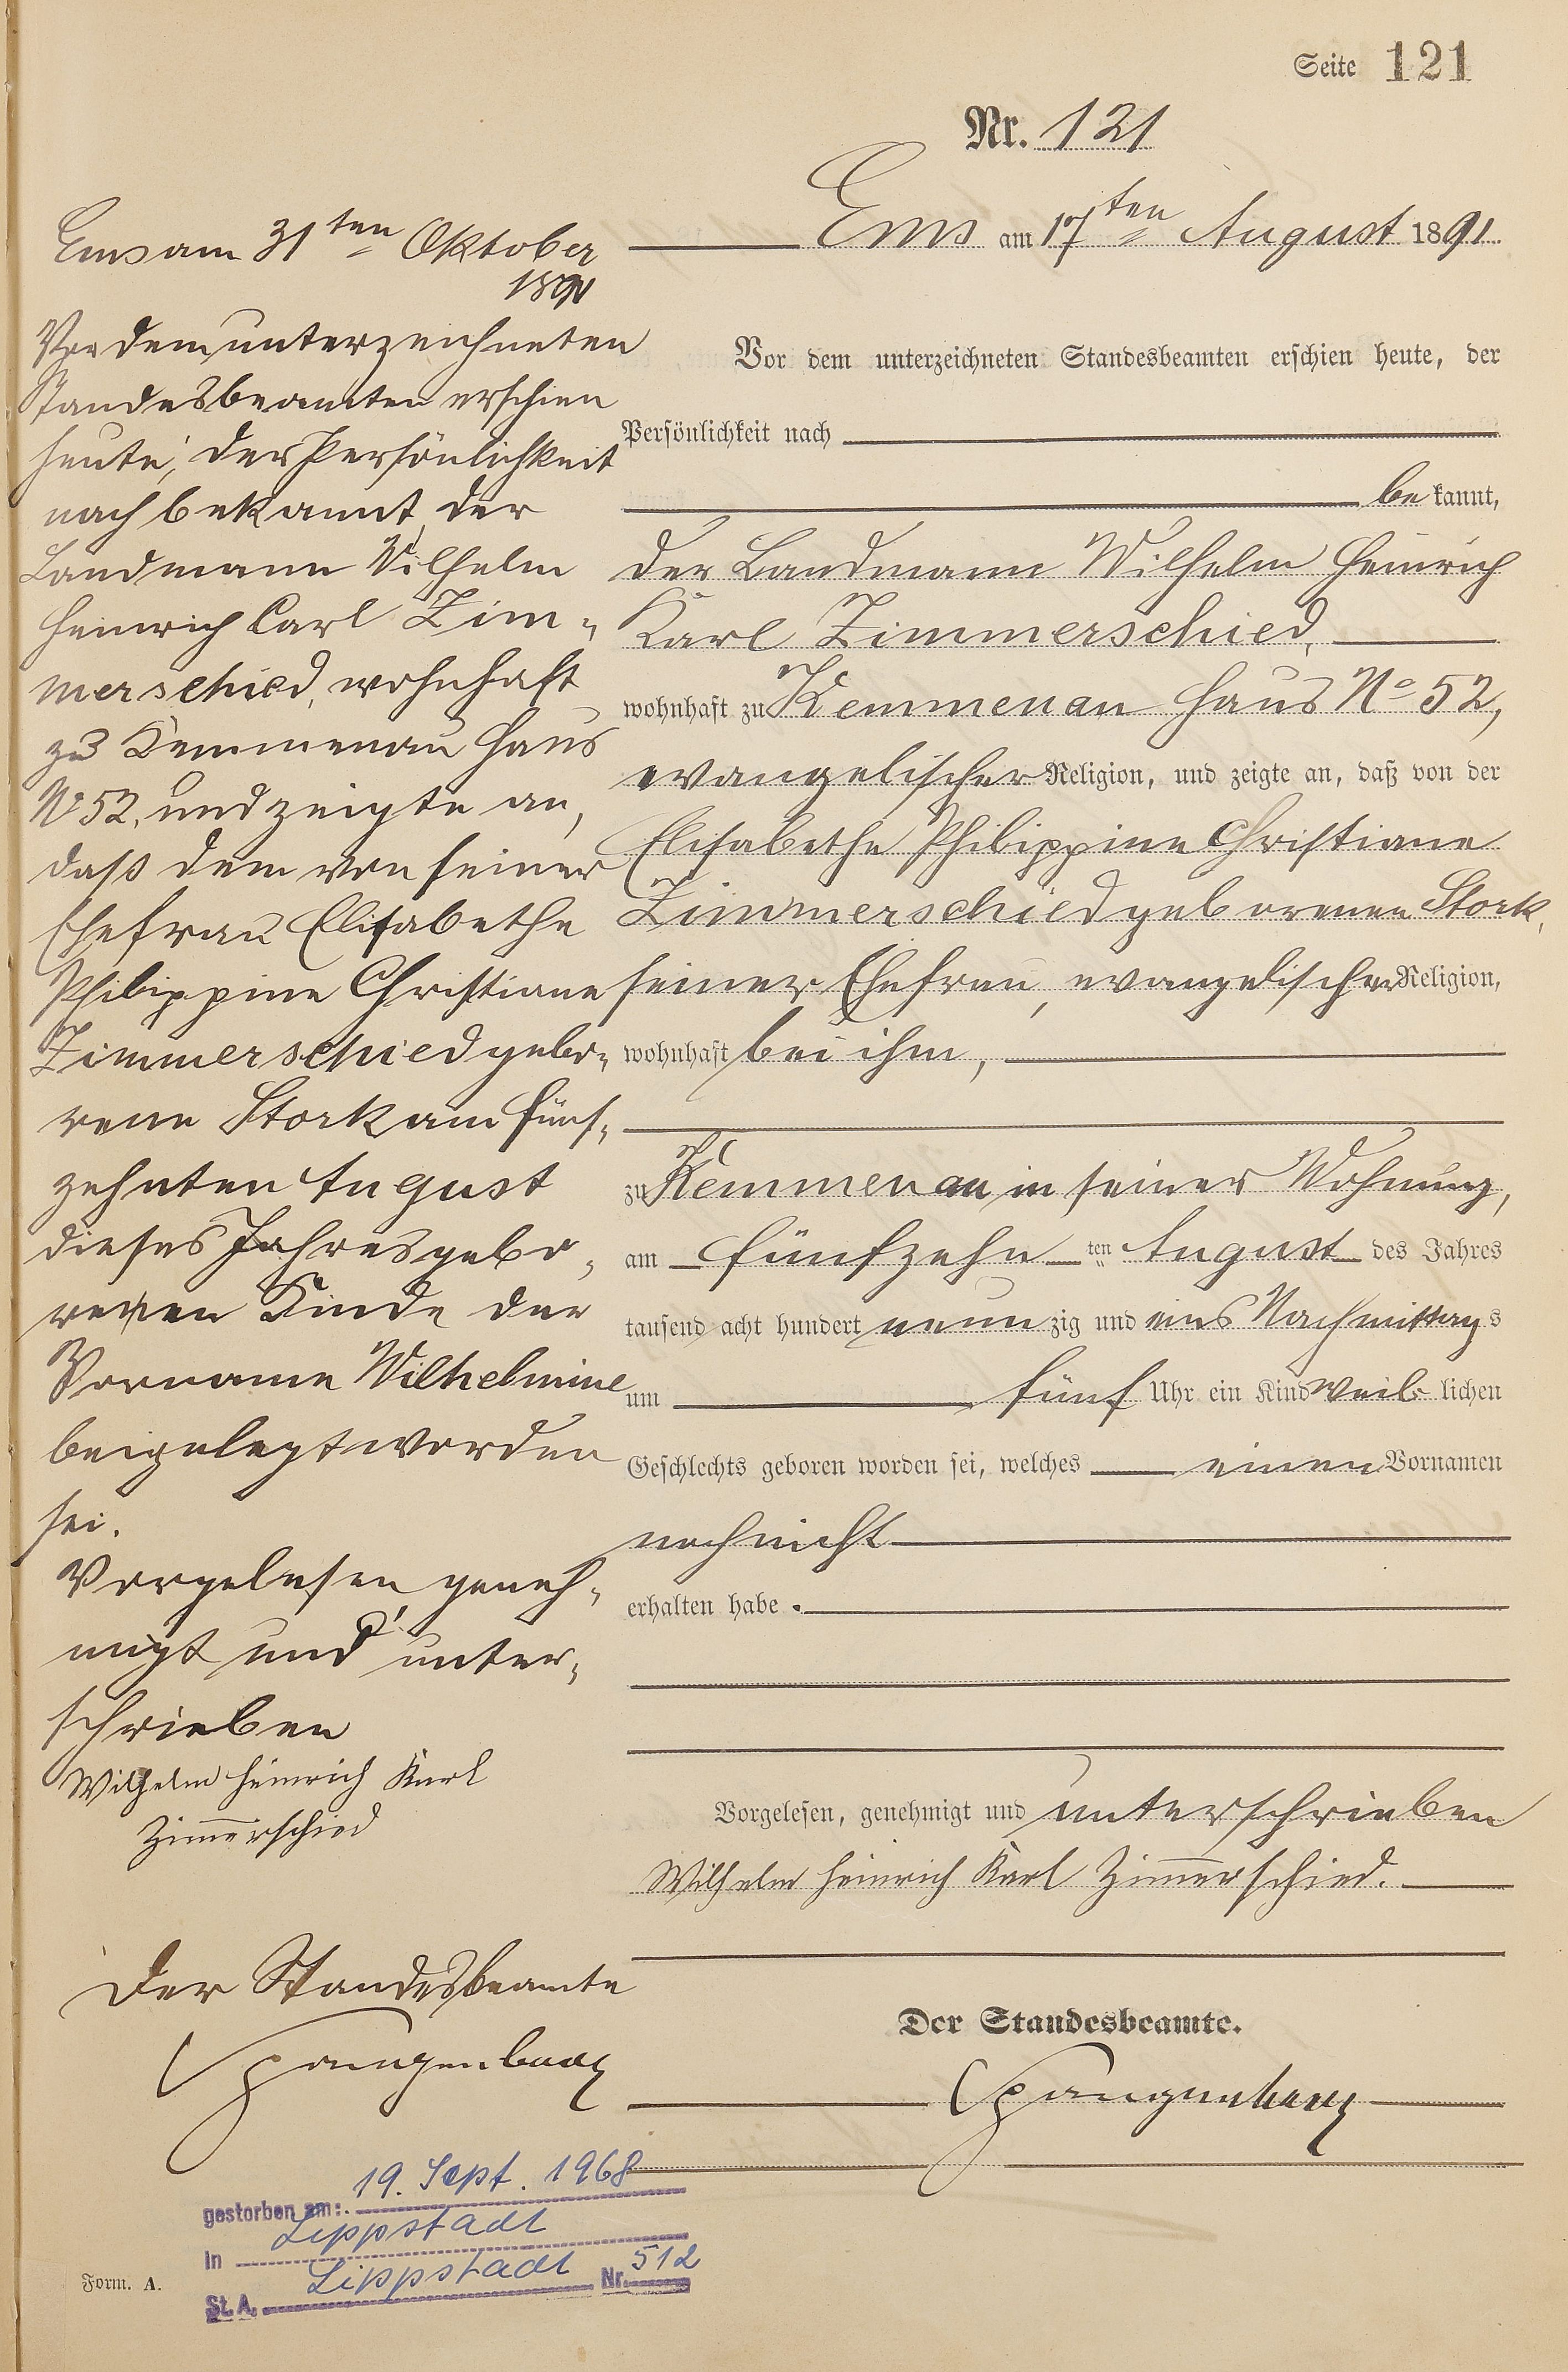 Seite 121
Nr. 121
Ems am 17ten August 1891.
Vor dem unterzeichneten Standesbeamten erschien heute, der
Persönlichkeit nach
bekannt,
der Landmann Wilhelm Heinrich
Karl Zimmerschied,
wohnhaft zu Kemmenau Haus No 52,
evangelischer Religion, und zeigte an, daß von der
Elisabethe Philippine Christiane
Zimmerschied geborenen Stork,
seiner Ehefrau, evangelischer Religion,
wohnhaft bei ihm,
zu Kemmenau in seiner Wohnung,
am fünfzehnten August des Jahres
tausend acht hundert neunzig und eins Nachmittags
um fünf Uhr ein Kind weiblichen
Geschlechts geboren worden sei, welches einen Vornamen
noch nicht
erhalten habe.
Vorgelesen, genehmigt und unterschrieben
Wilhelm Heinrich Karl Zimmerschied.
Der Standesbeamte.
Spangenberg
Ems am 31ten Oktober
1891
Vor dem unterzeichneten
Standesbeamten erschien
heute, der Persönlichkeit
nach bekannt, der
Landmann Wilhelm
Heinrich Carl Zim-
merschied, wohnhaft
zu Kemmenau Haus
No 52, und zeigte an,
daß dem von seiner
Ehefrau Elisabethe
Philippine Christiane
Zimmerschied gebo-
rene Stork am fünf-
zehnten August
dieses Jahres gebo-
renen Kinde der
Vorname Wilhelmine
beigelegt worden
sei.
Vorgelesen, geneh-
migt und unter-
schrieben
Wilhelm Heinrich Karl
Zimmerschied
Der Standesbeamte
Spangenberg
gestorben am: 19. Sept. 1968
in Lippstadt
St. A. Lippstadt Nr. 512
Form. A.